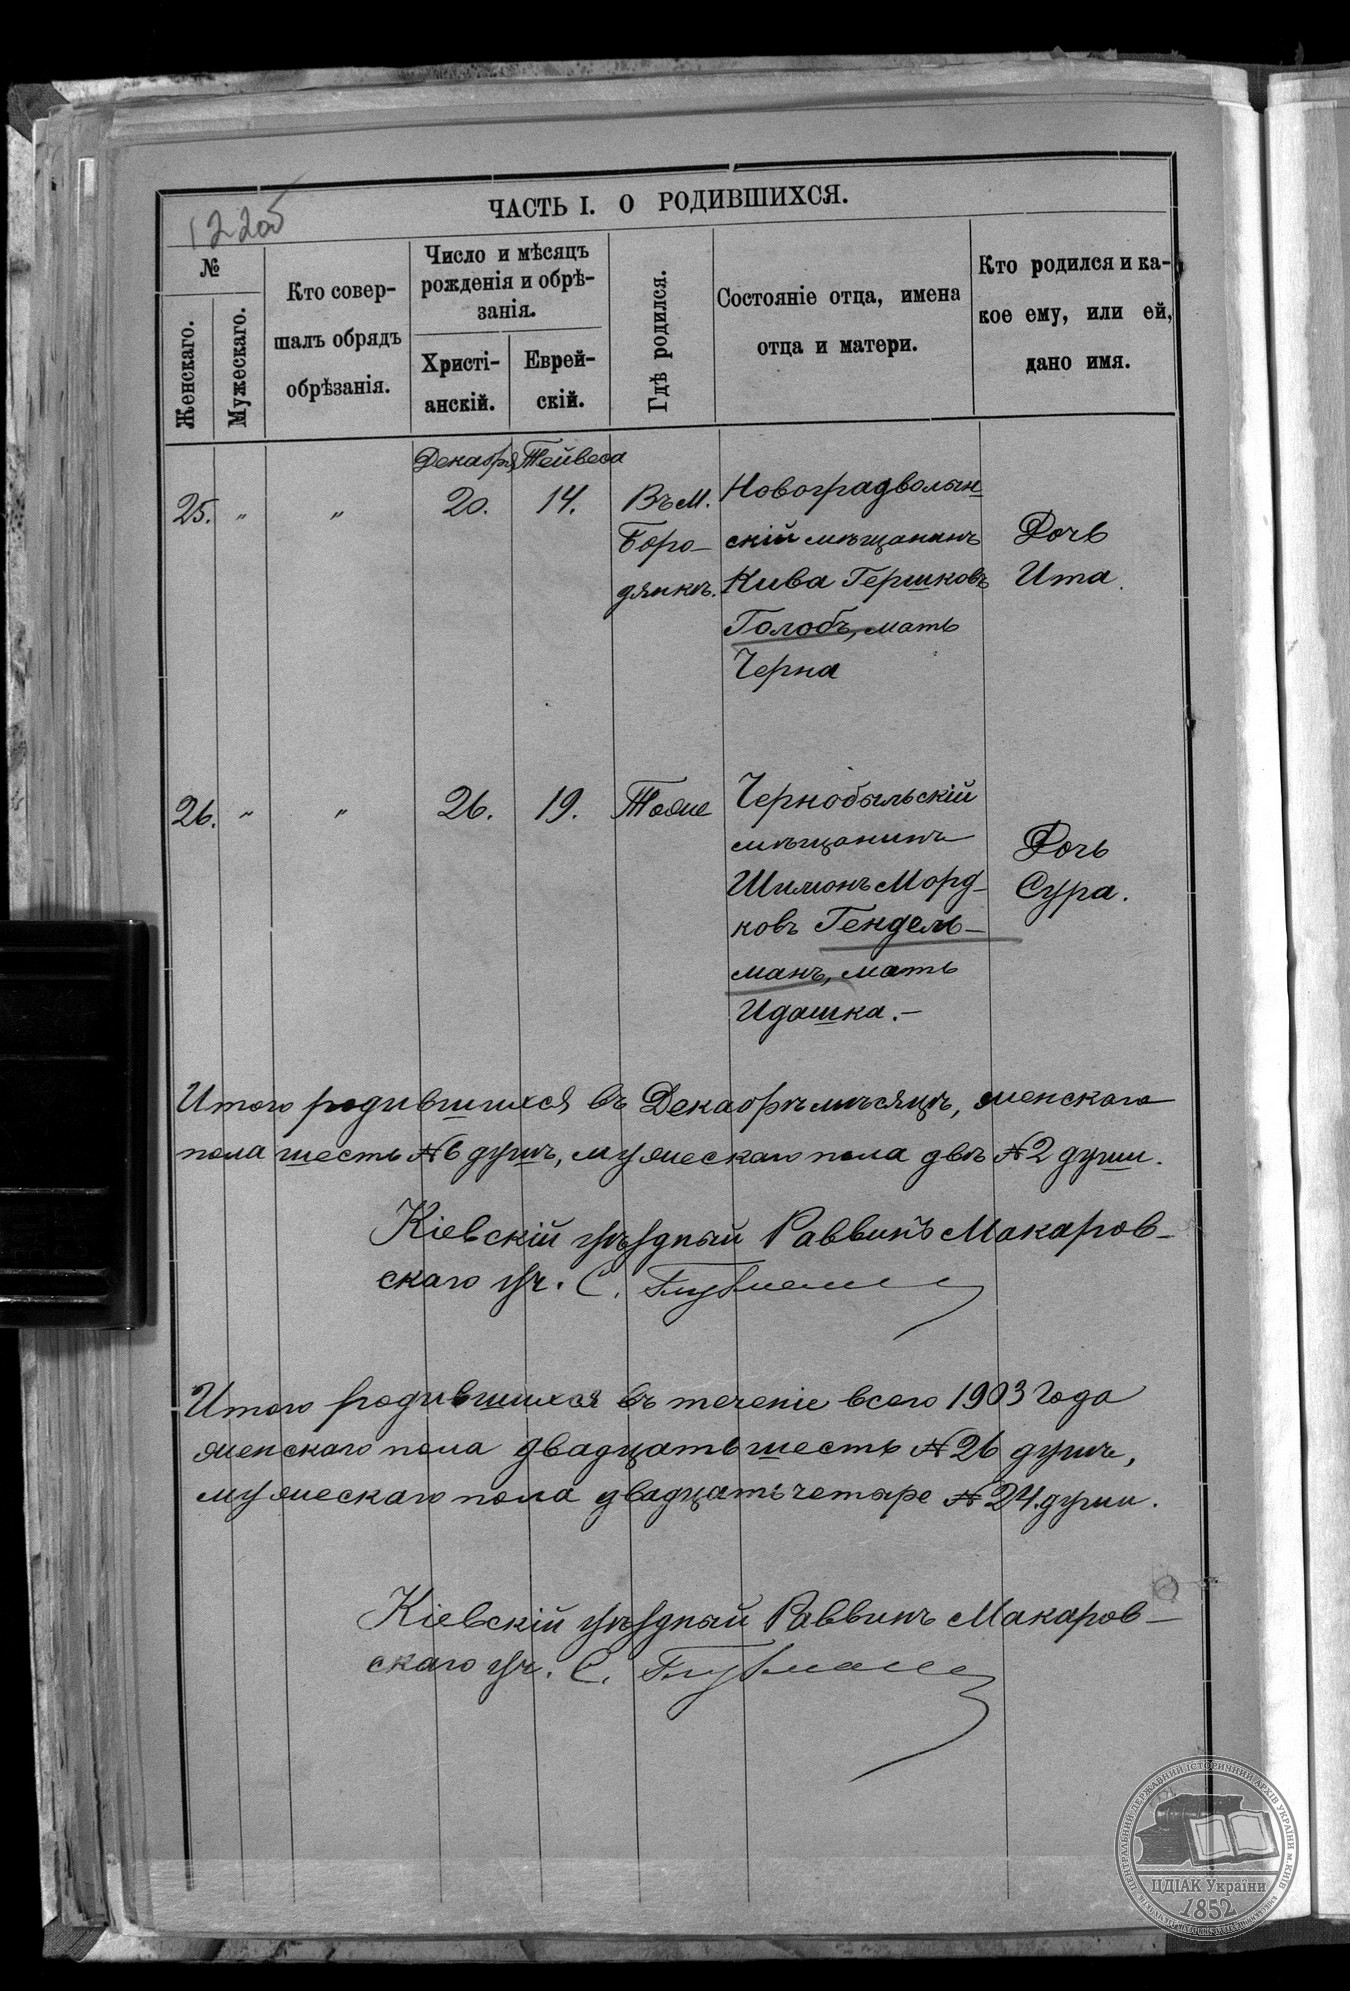 122об
ЧАСТЬ I. О РОДИВШИХСЯ.
№
Женскаго.
Мужескаго.
Кто совер-
шалъ обрядъ
обрѣзанія.
Число и мѣсяцъ
рожденія и обрѣ-
занія.
Христі-
анскій.
Еврей-
скій.
Гдѣ родился.
Состояніе отца, имена
отца и матери.
Кто родился и ка-
кое ему, или ей,
дано имя.
Декабря Тейвеса
25. " " 20. 14.
Въ м.
Боро-
дянкѣ.
Новоградволын-
скій мѣщанинъ
Кива Гершковъ
Голобъ, мать
Черна
Дочь
Ита.
26. " " 26. 19. Тоже
Чернобыльскій
мѣщанинъ
Шимонъ Морд-
ковъ Гендель-
манъ, мать
Идашка.-
Дочь
Сура.
Итого родившихся въ Декабрѣ мѣсяцѣ, женскаго
пола шесть № 6 душъ, мужескаго пола двѣ № 2 души.
Кіевскій уѣздный Раввинъ Макаров-
скаго уч. С.
Итого родившихся въ теченіе всего 1903 года
женскаго пола двадцать шесть № 26 душъ,
мужескаго пола двадцать четыре № 24 души.
Кіевскій уѣздный Раввинъ Макаров-
скаго уч. С.
ЦЕНТРАЛЬНИЙ ДЕРЖАВНИЙ ІСТОРИЧНИЙ АРХІВ УКРАЇНИ М.КИЇВ
ЦДІАК України
1852